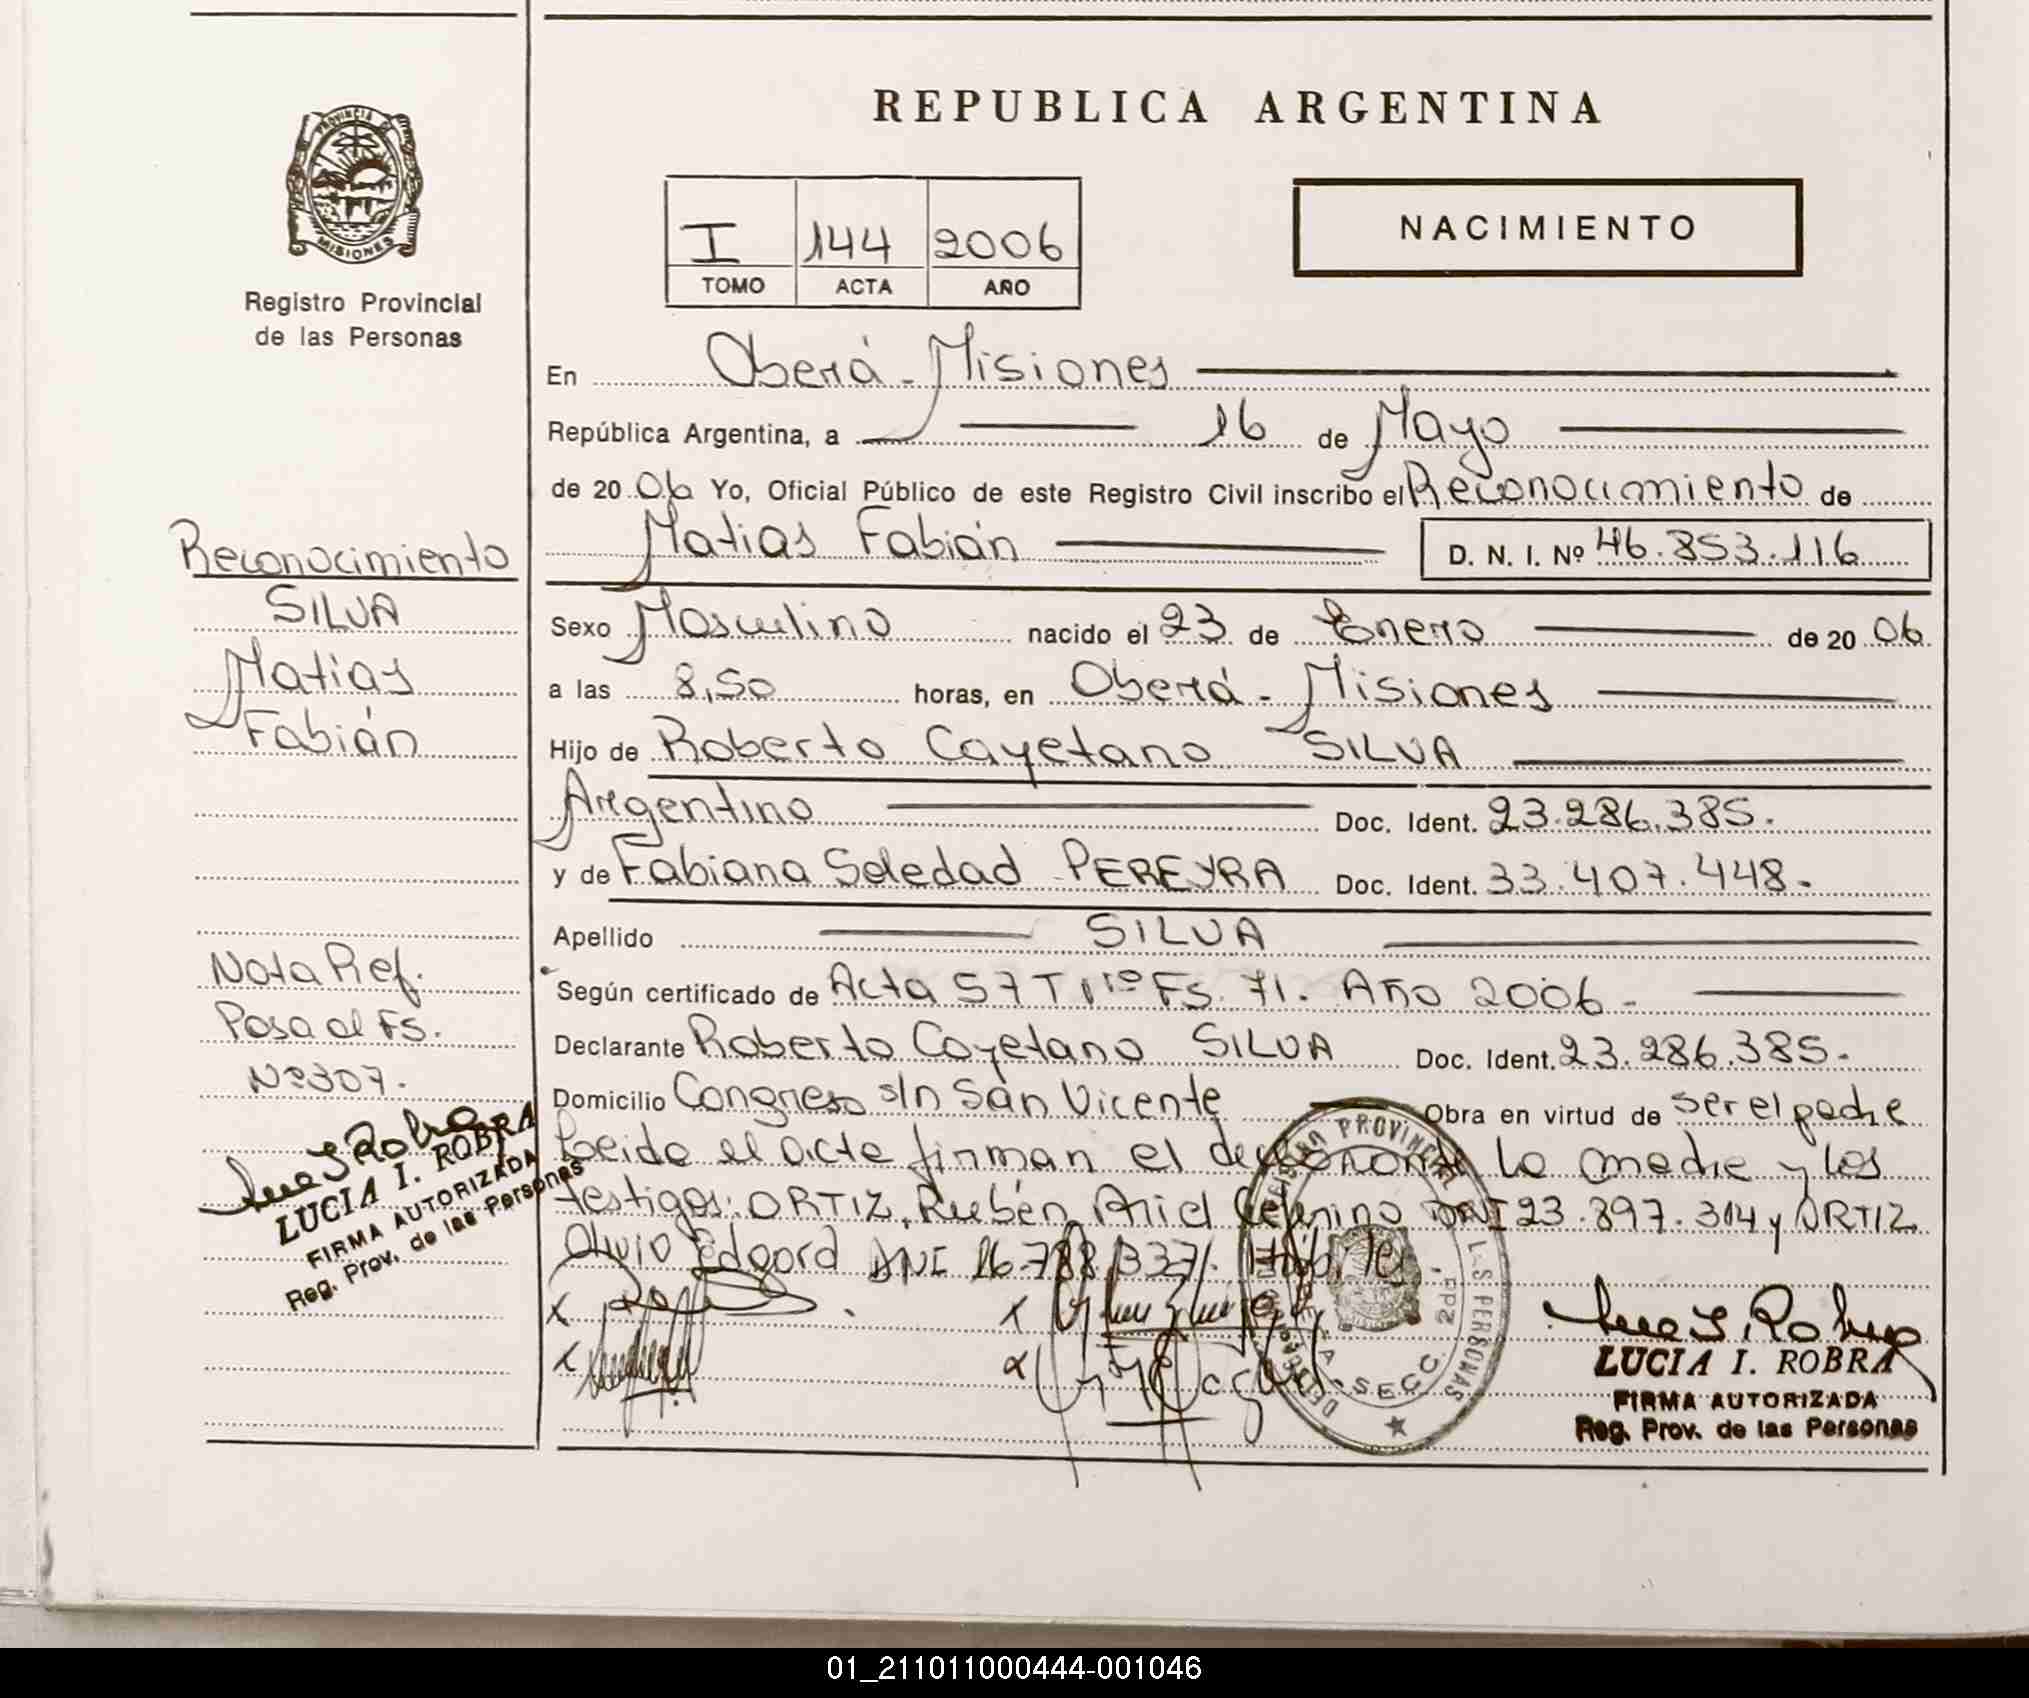 REPUBLICA ARGENTINA
PROVINCIA DE
MISIONES
Registro Provincial
de las Personas
I 144 2006
TOMO ACTA AÑO
NACIMIENTO
En Oberá - Misiones
República Argentina, a 16 de Mayo
de 2006 Yo, Oficial Público de este Registro Civil inscribo el Reconocimiento de
Matias Fabián D. N. I. Nº 46.853.116
Sexo Masculino nacido el 23 de Enero de 2006
a las 8,50 horas, en Oberá - Misiones
Hijo de Roberto Cayetano SILVA
Argentino Doc. Ident. 23.286.385.
y de Fabiana Soledad PEREYRA Doc. Ident. 33.407.448.
Apellido SILVA
Según certificado de Acta 57 T 1º Fs. 71. Año 2006 -
Declarante Roberto Cayetano SILVA Doc. Ident. 23.286.385.
Domicilio Congreso s/n San Vicente Obra en virtud de ser el padre
Leida el acta firman el declarante la madre y los
testigos: ORTIZ, Rubén Ariel DNI 23.897.314 y ORTIZ
Olivio Edgard DNI 16.788.337.
Reconocimiento
SILVA
Matias
Fabián
Nota Ref.
Pasa al FS.
Nº 307.
LUCIA I. ROBRA
FIRMA AUTORIZADA
Reg. Prov. de las Personas
LUCIA I. ROBRA
FIRMA AUTORIZADA
Reg. Prov. de las Personas
01_211011000444-001046